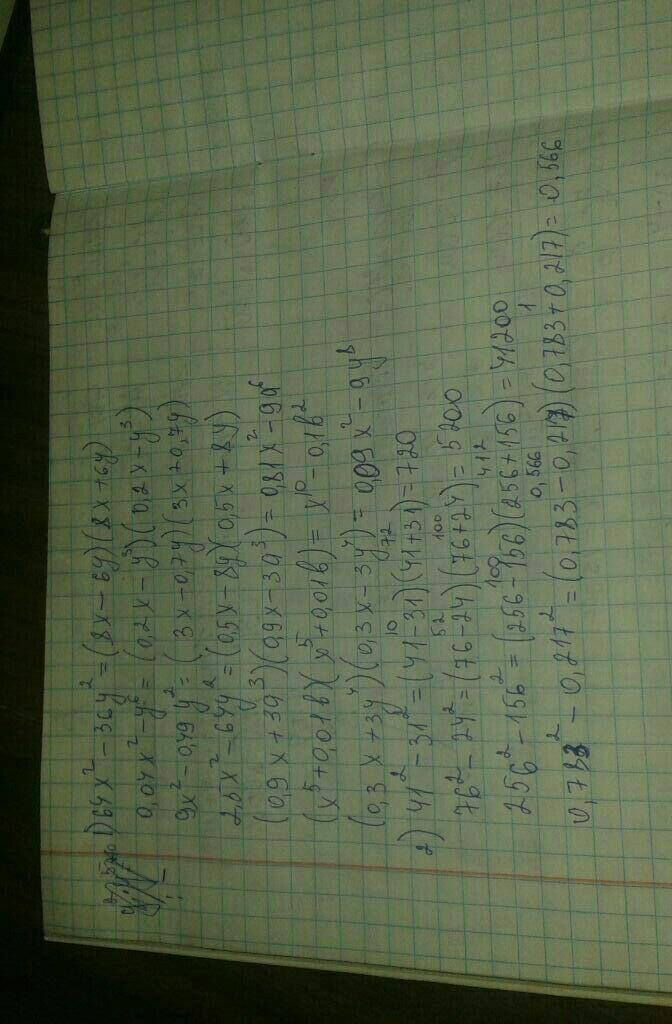 1) 64x² − 36y² = (8x − 6y)(8x + 6y)
0,04x² − y⁶ = (0,2x − y³)(0,2x − y³)
9x² − 0,49y² = (3x − 0,7y)(3x + 0,7y)
2,5x² − 64y² = (0,5x − 8y)(0,5x + 8y)
(0,9x + 3a³)(0,9x − 3a³) = 0,81x² − 9a⁶
(x⁵ + 0,01b)(x⁵ + 0,01b) = x¹⁰ − 0,1b²
(0,3x + 3y⁴)(0,3x − 3y⁴) = 0,09x² − 9y⁸
10 72
2) 41² − 31² = (41 − 31)(41 + 31) = 720
52 100
76² − 24² = (76 − 24)(76 + 24) = 5200
100 412
256² − 156² = (256 − 156)(256 + 156) = 41200
0,566 1
0,783² − 0,217² = (0,783 − 0,217)(0,783 + 0,217) = 0,566